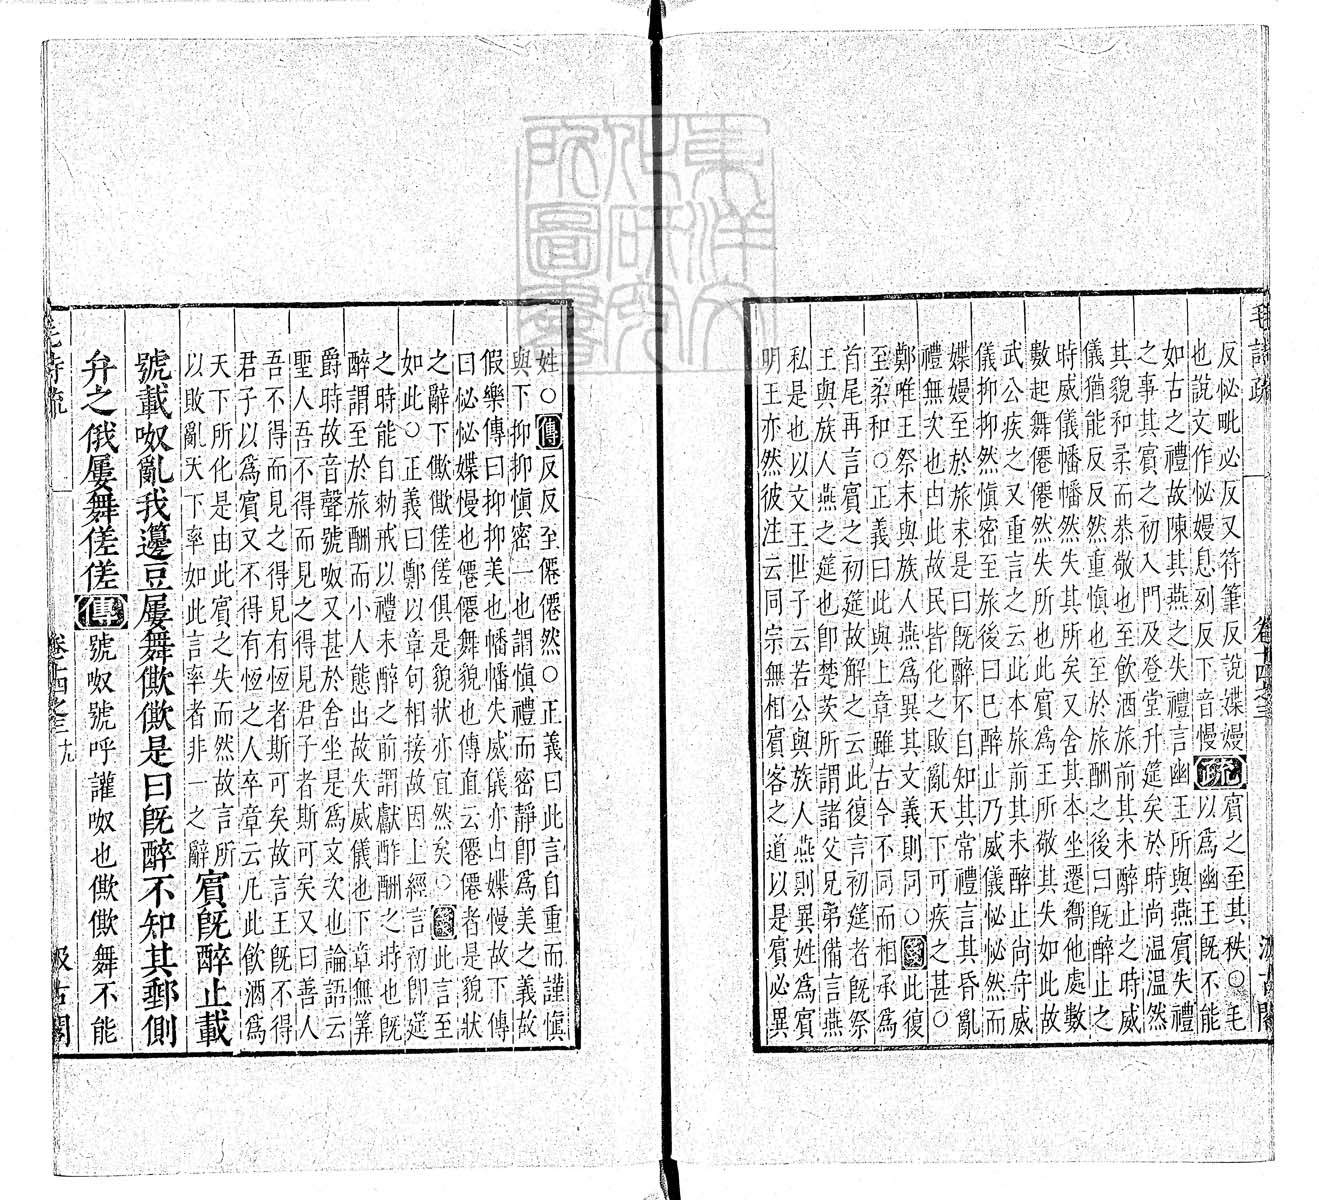 毛詩疏
卷十四之三
汲古閣
反怭毗必反又符筆反說媟嫚
也說文作怭嫚息列反下音慢疏以爲幽王旣不能
賓之至其秩○毛
如古之禮故陳其燕之失禮言幽王所與燕賓失禮
之事其賓之初入門及登堂升筵矣於時尚温温然
其貌和柔而恭敬也至飲酒旅前其未醉止之時威
儀猶能反反然重慎也至於旅酬之後曰旣醉止之
時威儀幡幡然失其所矣又舍其本坐遷嚮他處數
數起舞僊僊然失所也此賓爲王所敬其失如此故
武公疾之又重言之云此本旅前其未醉止尚守威
儀抑抑然慎密至旅後曰巳醉止乃威儀怭怭然而
媟嫚至於旅末是曰旣醉不自知其常禮言其昏亂
禮無次也凷此故民皆化之敗亂天下可疾之甚○
鄭唯王祭末與族人燕爲異其文義則同○箋此復
至柔和○正義曰此與上章雖古今不同而相承爲
首尾再言賓之初筵故解之云此復言初筵者旣祭
王與族人燕之筵也卽楚茨所謂諸父兄弟備言燕
私是也以文王世子云若公與族人燕則異姓爲賓
明王亦然彼注云同宗無相賓客之道以是賓必異
姓○傳反反至僊僊然○正義曰此言自重而謹愼
與下抑抑愼密一也謂愼禮而密靜卽爲美之義故
假樂傳曰抑抑美也幡幡失威儀亦凷媟慢故下傳
曰怭怭媟慢也僊僊舞貌也傳直云僊僊者是貌狀
之辭下僛僛傞傞俱是貌狀亦宜然矣○箋此言至
如此○正義曰鄭以章句相接故因上經言初卽筵
之時能自勑戒以禮未醉之前謂獻酢酬之時也旣
醉謂至於旅酬而小人態出故失威儀也下章無筭
爵時故音聲號呶又甚於舍坐是爲文次也論語云
聖人吾不得而見之得見君子者斯可矣又曰善人
吾不得而見之得見有恆者斯可矣故言王旣不得
君子以爲賓又不得有恆之人卒章云凡此飲酒爲
天下所化是由此賓之失而然故言所
以敗亂天下率如此言率者非一之辭賓旣醉止載
號載呶亂我籩豆屢舞僛僛是曰旣醉不知其郵側
弁之俄屢舞傞傞傳號呶號呼讙呶也僛僛舞不能
毛詩疏
卷十四之三
十九
汲古閣
東洋文化研究所圖書